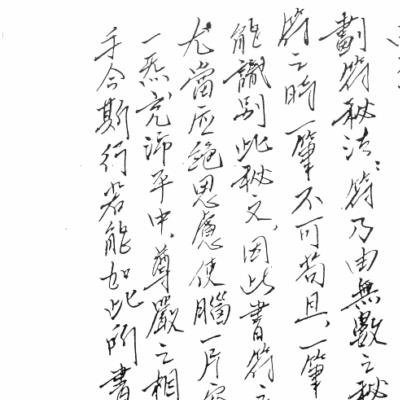 劃符秘法：符乃由無數之秘
符之時一筆不可苟且，一筆
能識別此秘文，因此書符之
尤當应絕思慮使腦一片空
一炁充沛平中，尊嚴之相
手令斯行若能如此所書